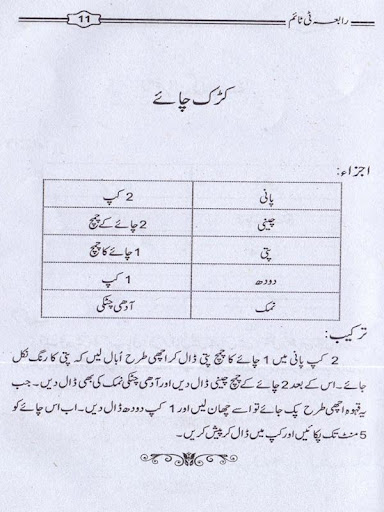 رابعہ ٹی ٹائم 11
کڑک چائے
اجزاء:
پانی 2 کپ
چینی 2 چائے کے چمچ
پتی 1 چائے کا چمچ
دودھ 1 کپ
نمک آدھی چٹکی
ترکیب:
2 کپ پانی میں 1 چائے کا چمچ پتی ڈال کر اچھی طرح اُبال لیں کہ پتی کا رنگ نکل
جائے۔ اس کے بعد 2 چائے کے چمچ چینی ڈال دیں اور آدھی چٹکی نمک کی بھی ڈال دیں۔ جب
یہ قہوہ اچھی طرح پک جائے تو اسے چھان لیں اور 1 کپ دودھ ڈال دیں۔ اب اس چائے کو
5 منٹ تک پکائیں اور کپ میں ڈال کر پیش کریں۔